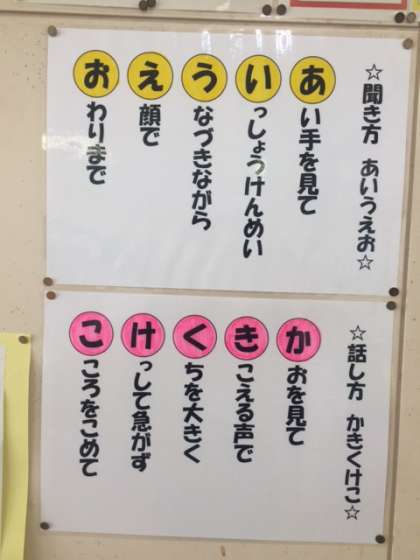 ☆聞き方 あいうえお☆
あい手を見て
いっしょうけんめい
うなづきながら
え顔で
おわりまで
☆話し方 かきくけこ☆
かおを見て
きこえる声で
くちを大きく
けっして急がず
こころをこめて